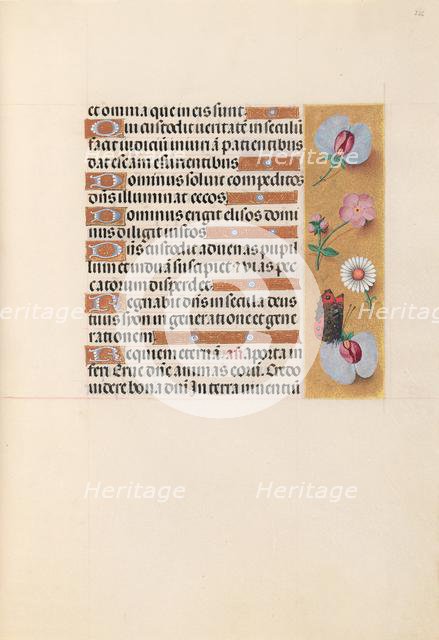 et omnia que in eis sunt
Qui custodit veritatē in seculū
facit iudiciū iniuriā patientibus
dat escam esurientibus
Dominus soluit compeditos
dn̄s illuminat cecos
Dominus erigit elisos domi
nus diligit iustos
Dn̄s custodit aduenas pupil
lum et viduā suscipiet et vias pec
catorum disperdet
Regnabit dn̄s in secula deus
tuus syon in generatione et gene
rationem
Requiem eternā añ a porta in
feri Erue dn̄e animas eorū Credo
videre bona dn̄i In terra viuentiū
Heritage
Heritage
Heritage
Heritage
Heritage
Heritage